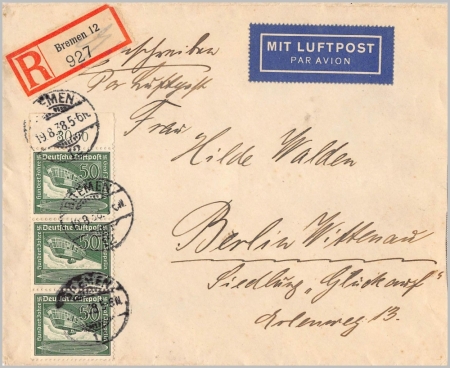 Bremen 12
R
927
MIT LUFTPOST
PAR AVION
Einschreiben
Per Luftpost
BREMEN
19.8.38.5-6N
Frau
Hilde Walden
Berlin Wittenau
Siedlung „Glückauf“
Erlenweg 13.
Deutsche Luftpost
50
BREMEN
Deutsche Luftpost
50
BREMEN
Deutsche Luftpost
50